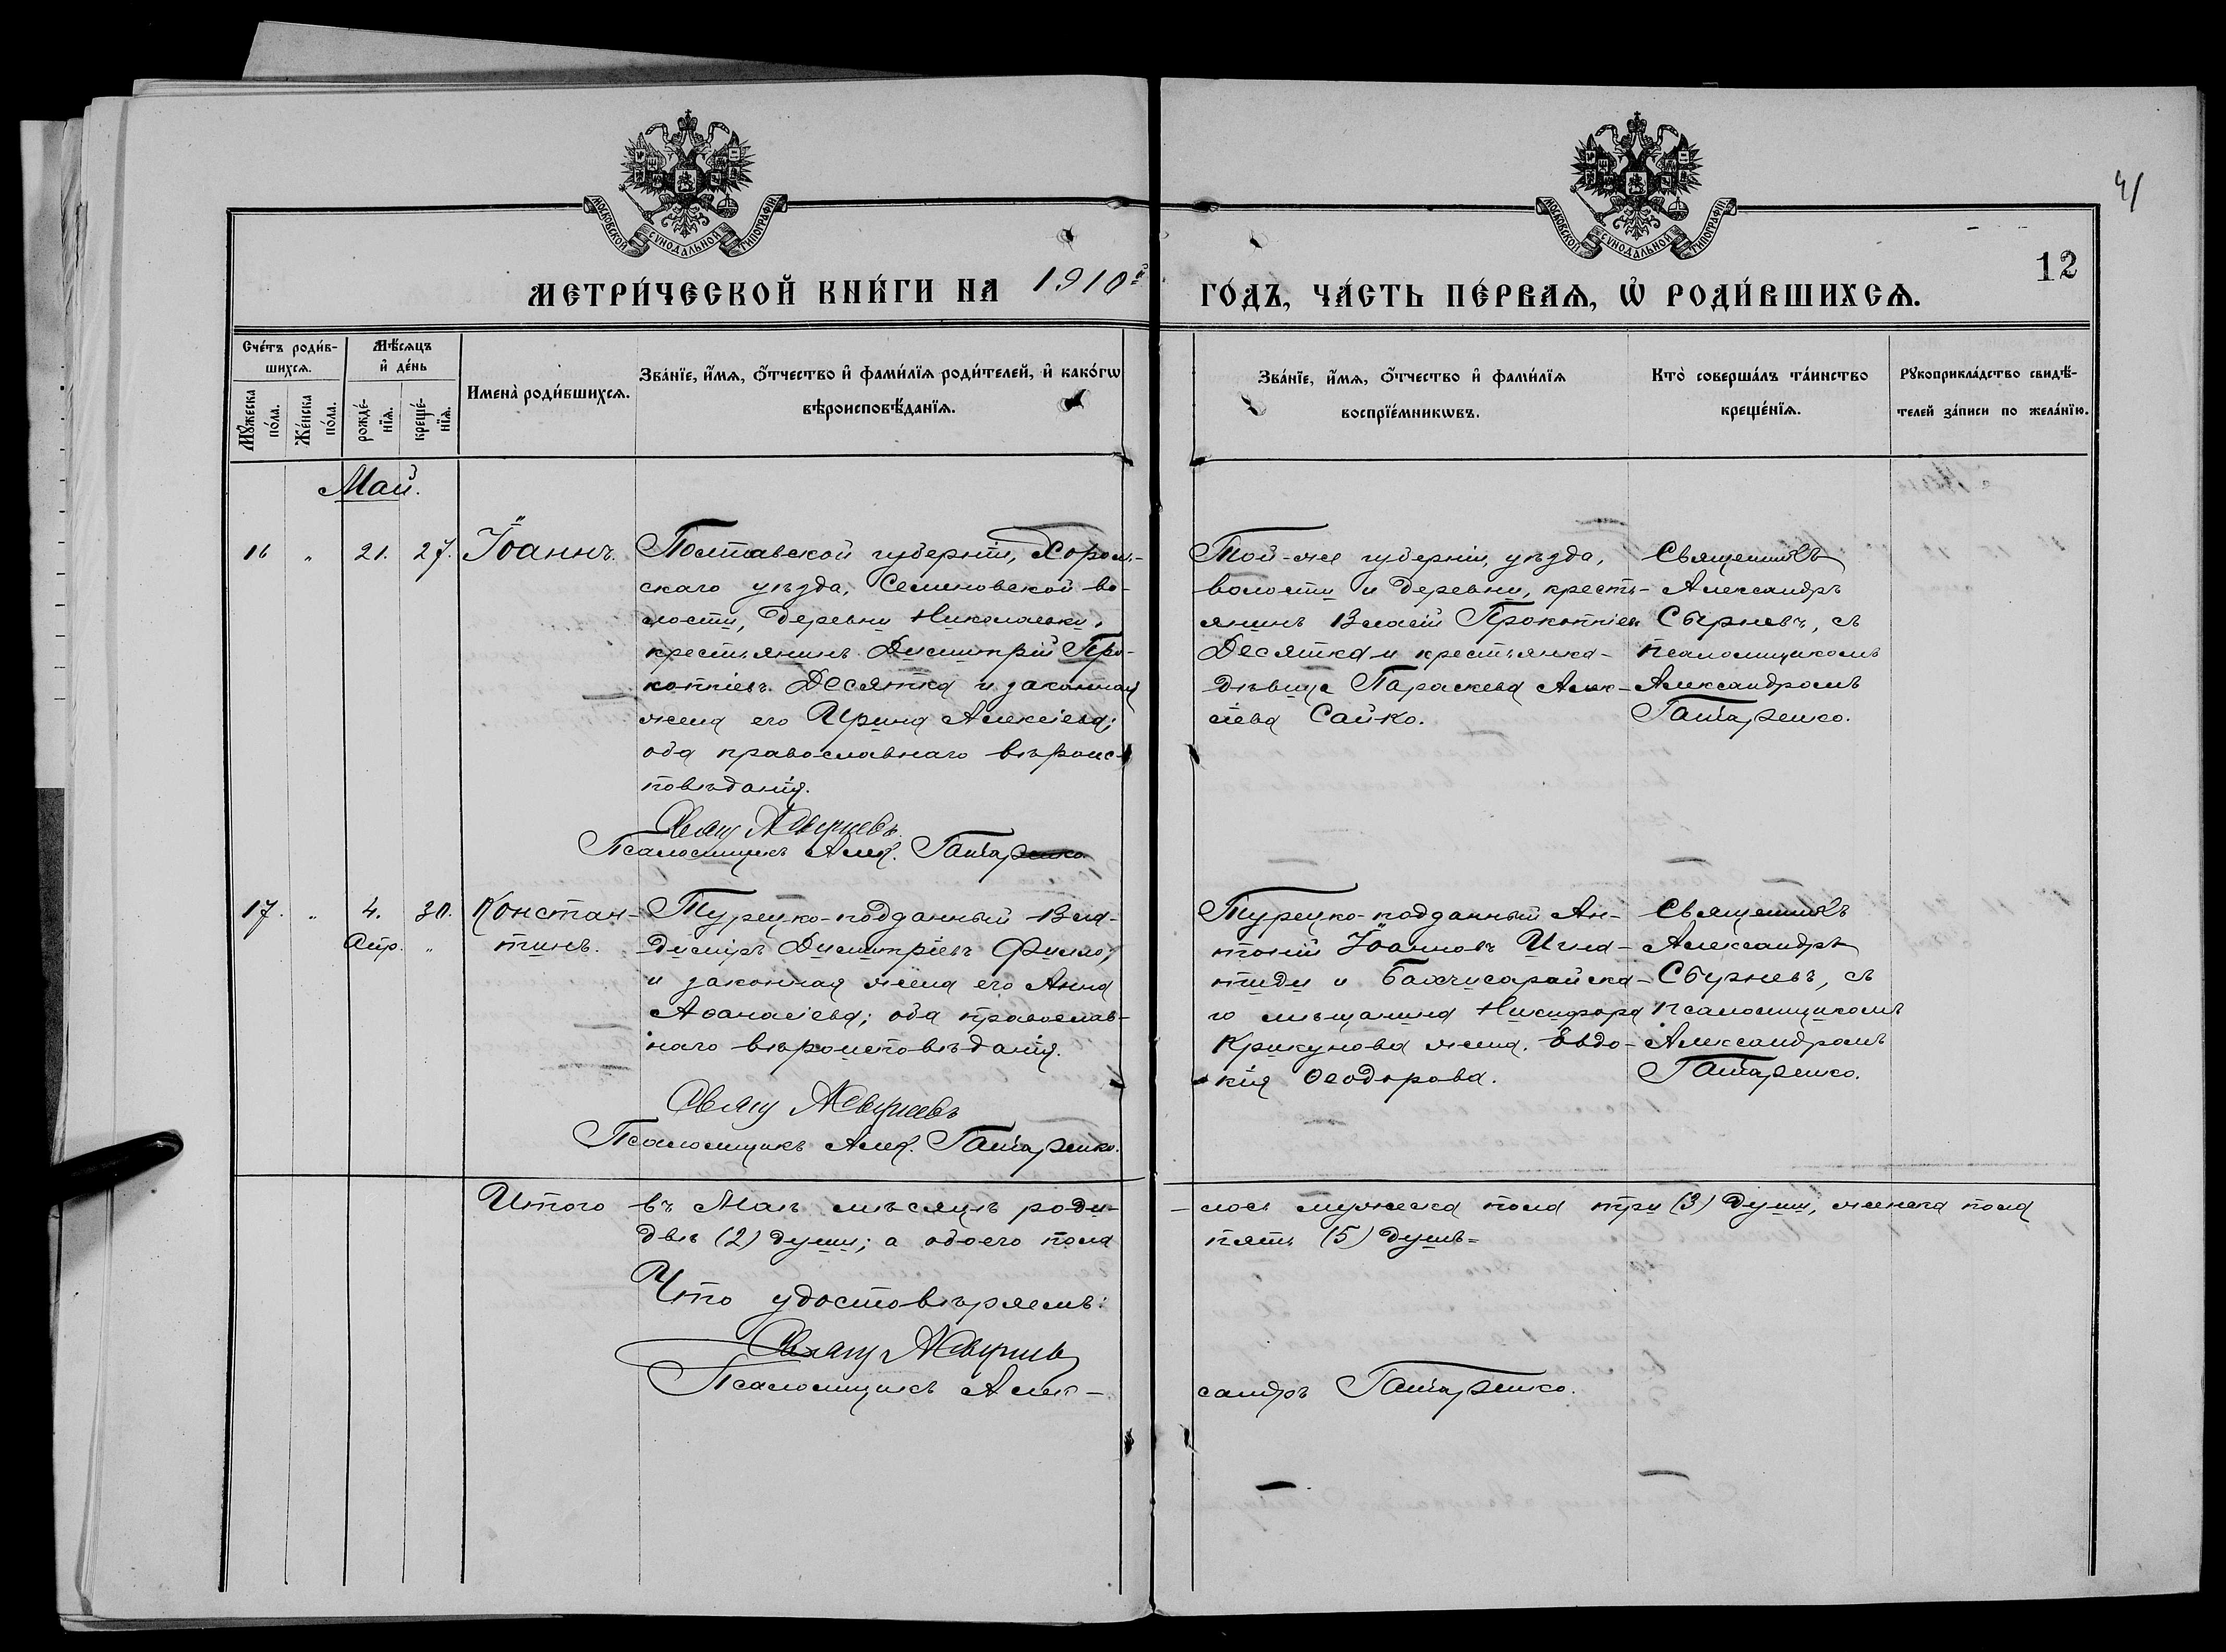 41
12
МОСКОВСКОЙ СѴНОДАЛЬНОЙ ТИПОГРАФІИ
МОСКОВСКОЙ СѴНОДАЛЬНОЙ ТИПОГРАФІИ
МЕТРИ́ЧЕСКОЙ КНИ́ГИ НА 1910й ГО́ДЪ, ЧА́СТЬ ПЕ́РВАѦ, Ѽ РОДИ́ВШИХСѦ.
Сче́тъ роди́в-
шихсѧ.
Мꙋ́жеска
по́ла.
Же́нска
по́ла.
Мѣ́сѧцъ
и҆ де́нь
рожде́-
нїѧ.
креще́-
нїѧ.
Имена̀ роди́вшихсѧ.
Зва́нїе, и҆́мѧ, ѻ҆́тчество и҆ фами́лїѧ роди́телей, и҆ како́гѡ
вѣроисповѣ́данїѧ.
Зва́нїе, и҆́мѧ, ѻ҆́тчество и҆ фами́лїѧ
воспрїе́мникѡвъ.
Кто̀ соверша́лъ та́инство
креще́нїѧ.
Рꙋкоприкла́дство свидѣ́-
телей за́писи по жела́нїю.
Май.
16 " 21. 27. Іоаннъ.
Полтавской губерніи, Хороль-
скаго уѣзда, Семеновской во-
лости, деревни Николаевки,
крестьянинъ Димитрій Про-
копіевъ Десятка и законная
жена его Ирина Алексіева;
оба православнаго вѣроис-
повѣданія.
Свящ. А Сбурневъ.
Псаломщикъ Алек. Гатаренко.
Той-же губерніи, уѣзда,
волости и деревни, кресть-
янинъ Власій Прокопіевъ
Десятка и крестьянка-
дѣвица Параскева Алек-
сіева Сайко.
Священникъ
Александръ
Сбурневъ, съ
псаломщикомъ
Александромъ
Гатаренко.
17. " 4. 30. Констан-
Апр. " тинъ.
Турецко-подданный Вла-
димиръ Димитріевъ Филло,
и законная жена его Анна
Аѳанасіева; оба православ-
наго вѣроисповѣданія.
Свящ А Сбурневъ
Псаломщикъ Алек. Гатаренко.
Турецко-подданный Ан-
тоній Іоанновъ Игна-
тиди и Бахчисарайска-
го мѣщанина Никифора
Крикунова жена Евдо-
кія Ѳеодорова.
Священникъ
Александръ
Сбурневъ, съ
псаломщикомъ
Александромъ
Гатаренко.
Итого въ Маѣ мѣсяцѣ роди-
лось мужеска пола три (3) души, женска пола
двѣ (2) души; а обоего пола
пять (5) душъ=
Что удостовѣряемъ:
Свящ А Сбурневъ
Псаломщикъ Алек-
сандръ Гатаренко.